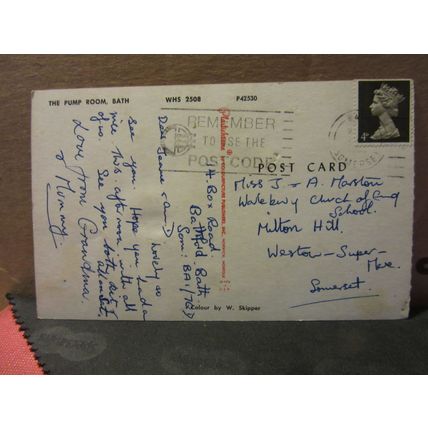 THE PUMP ROOM, BATH
WHS 2508
P42530
REMEMBER
TO USE THE
POST CODE
SOMERSET
4D
POST CARD
Miss J & A. Marston
Church of Eng
School.
Milton Hill.
Weston-Super
Mare.
Somerset.
Box Road.
Bath.
Som: BA1/7QD
Dear Joanne and
lovely to
see you. Hope you had a
nice this afternoon with all
of us. See you both
Love from Grandma
& Mummy.
Colour by W. Skipper